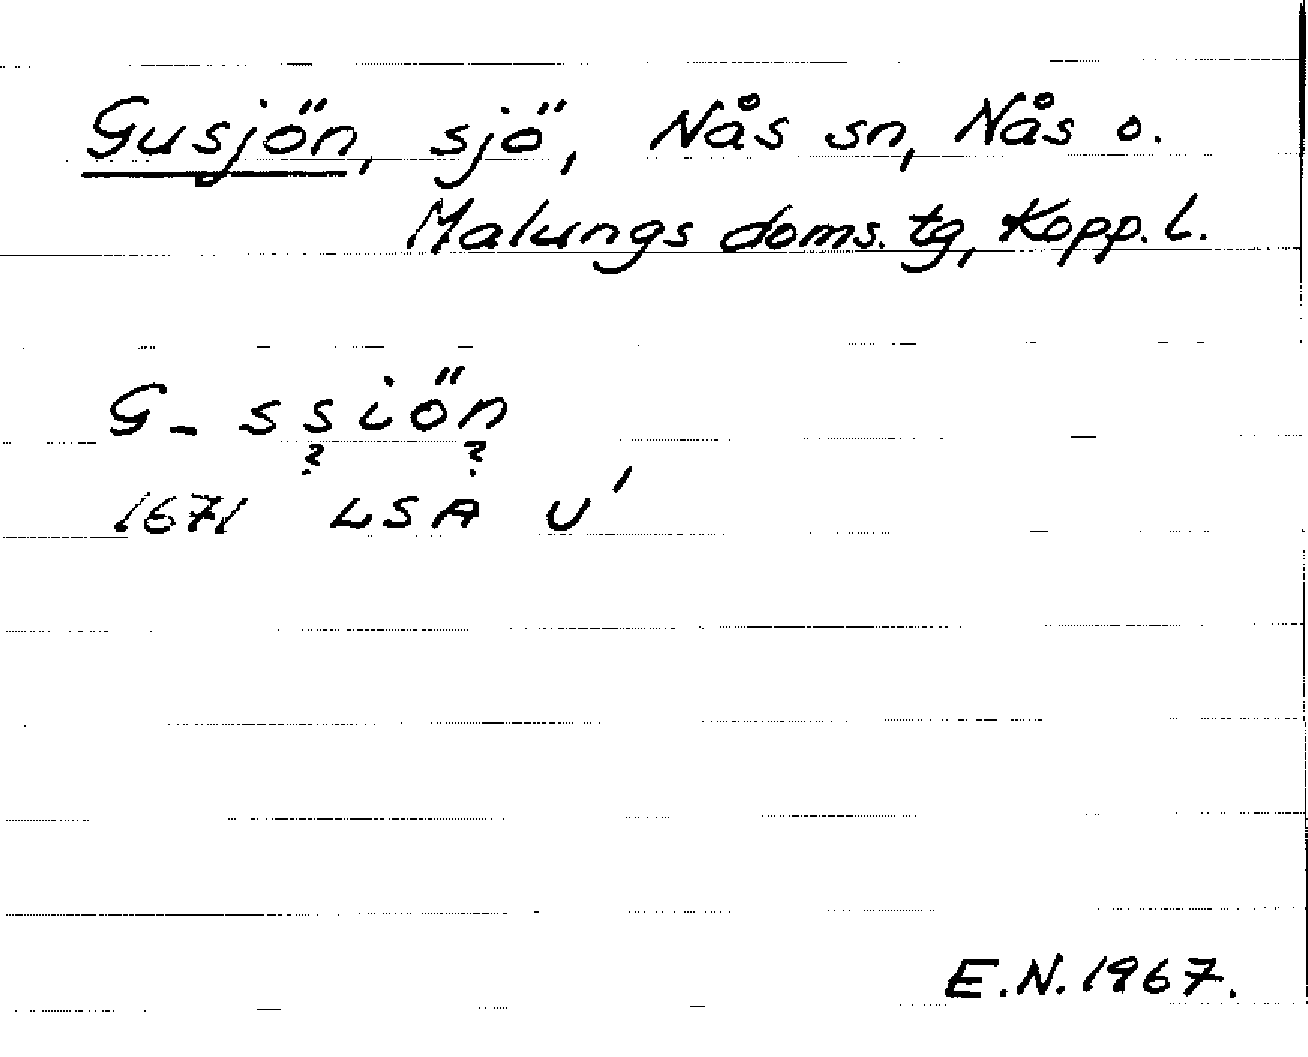 Gusjön, sjö, Nås sn, Nås o.
Malungs doms. tg, Kopp. l.
G- ssiön
? ?
1671 LSA U'
E.N. 1967.